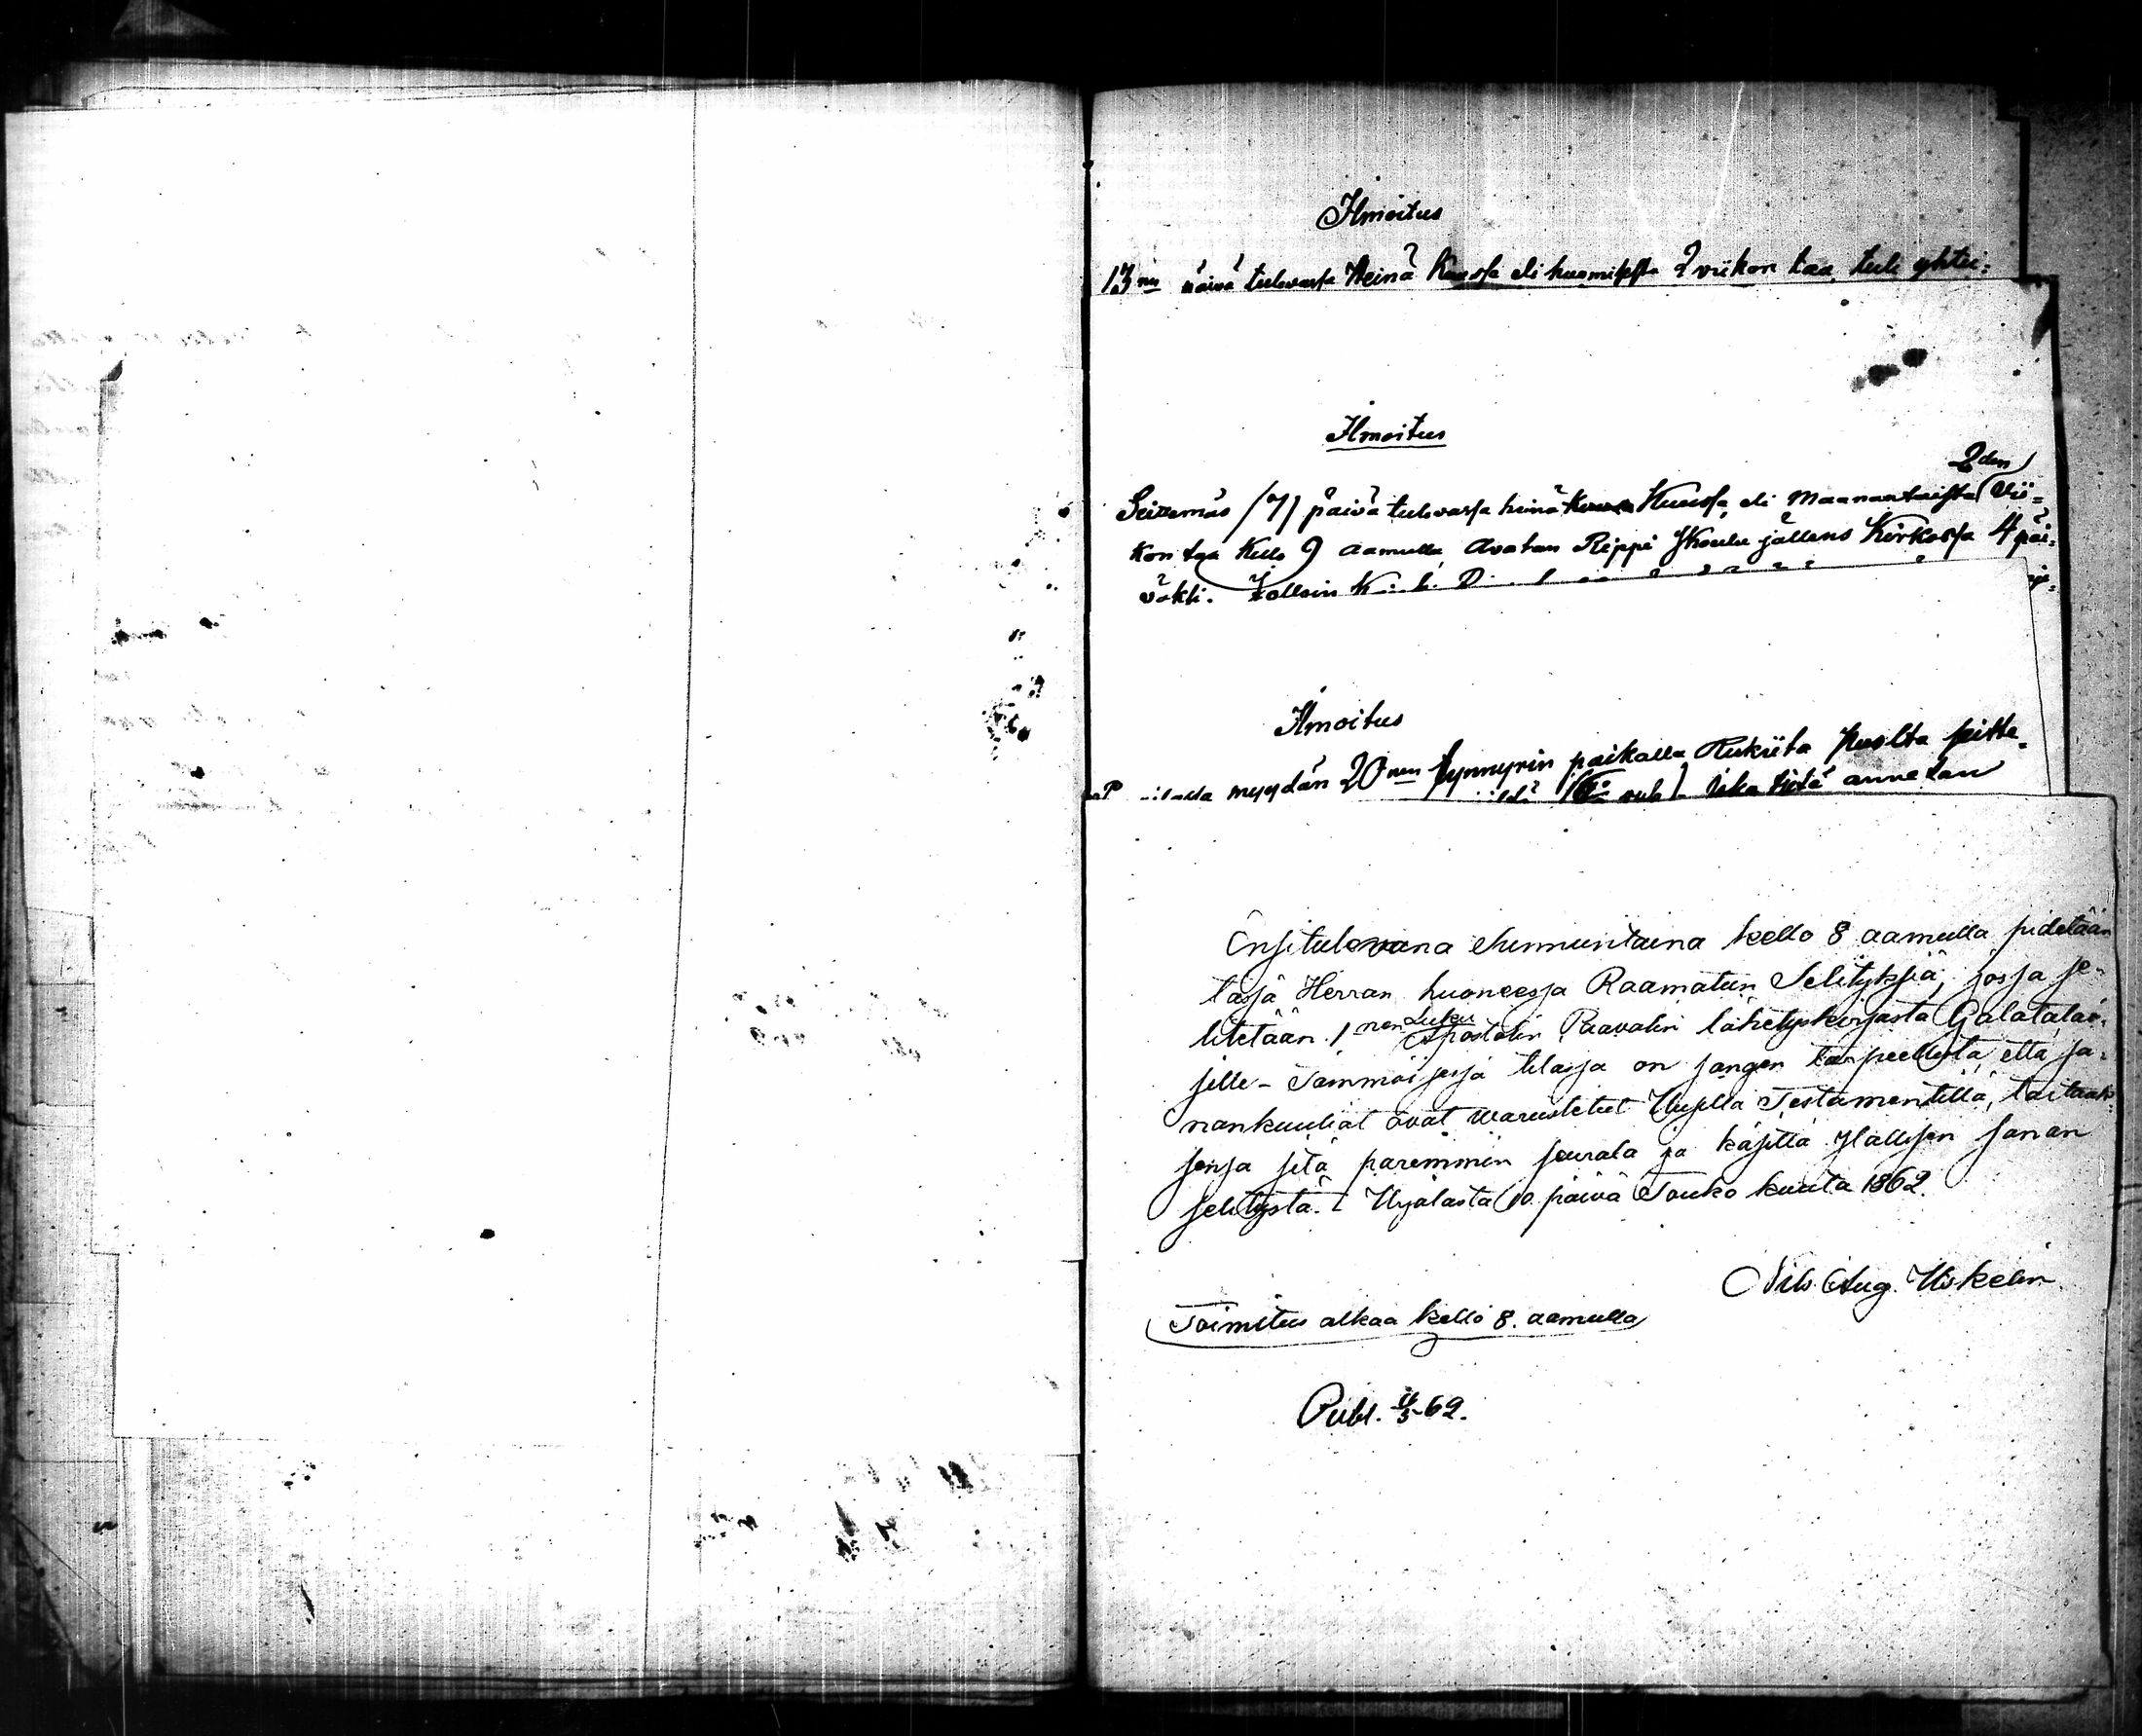 Ilmoitus
13nen päivä tulevassa Heinä Kuussa eli huomisesta 2 viikon taa, tule yhtei=
Ilmoitus
2den
Seittemäs /7/ päivä tulevassa heinä Kuussa, eli Maanantaista vii=
kon taa Kello 9 aamulla, Avatan Rippi Skoulu jällens Kirkossa 4 päi=
väksi. Jolloin
Ilmoitus
myydän 20nen tynnyrin paikalla Rukiita Puolta sitte
rub) Sika tietä annetan
Ensitulevana Sunnuntaina kello 8 aamulla pidetään
täsä Herran huoneessa Raamatun Selityksiä, jossa se=
litetään 1nen Luku Apostolin Paavalin lähetyskirjasta Galatalai=
sille - Tämmöisesä tilassa on sangen tarpeellista, että sa=
nankuuliat ovat warustetut Uudella Testamentilla, taitaak=
sensa sitä paremmin seurata ja käsittä Jallisen sanan
selitystä. - Urjalasta 10. päivä Touko kuuta 1862.
Nils Aug. Uskelin
Toimitus alkaa kello 8. aamulla
Publ. 11/5 62.